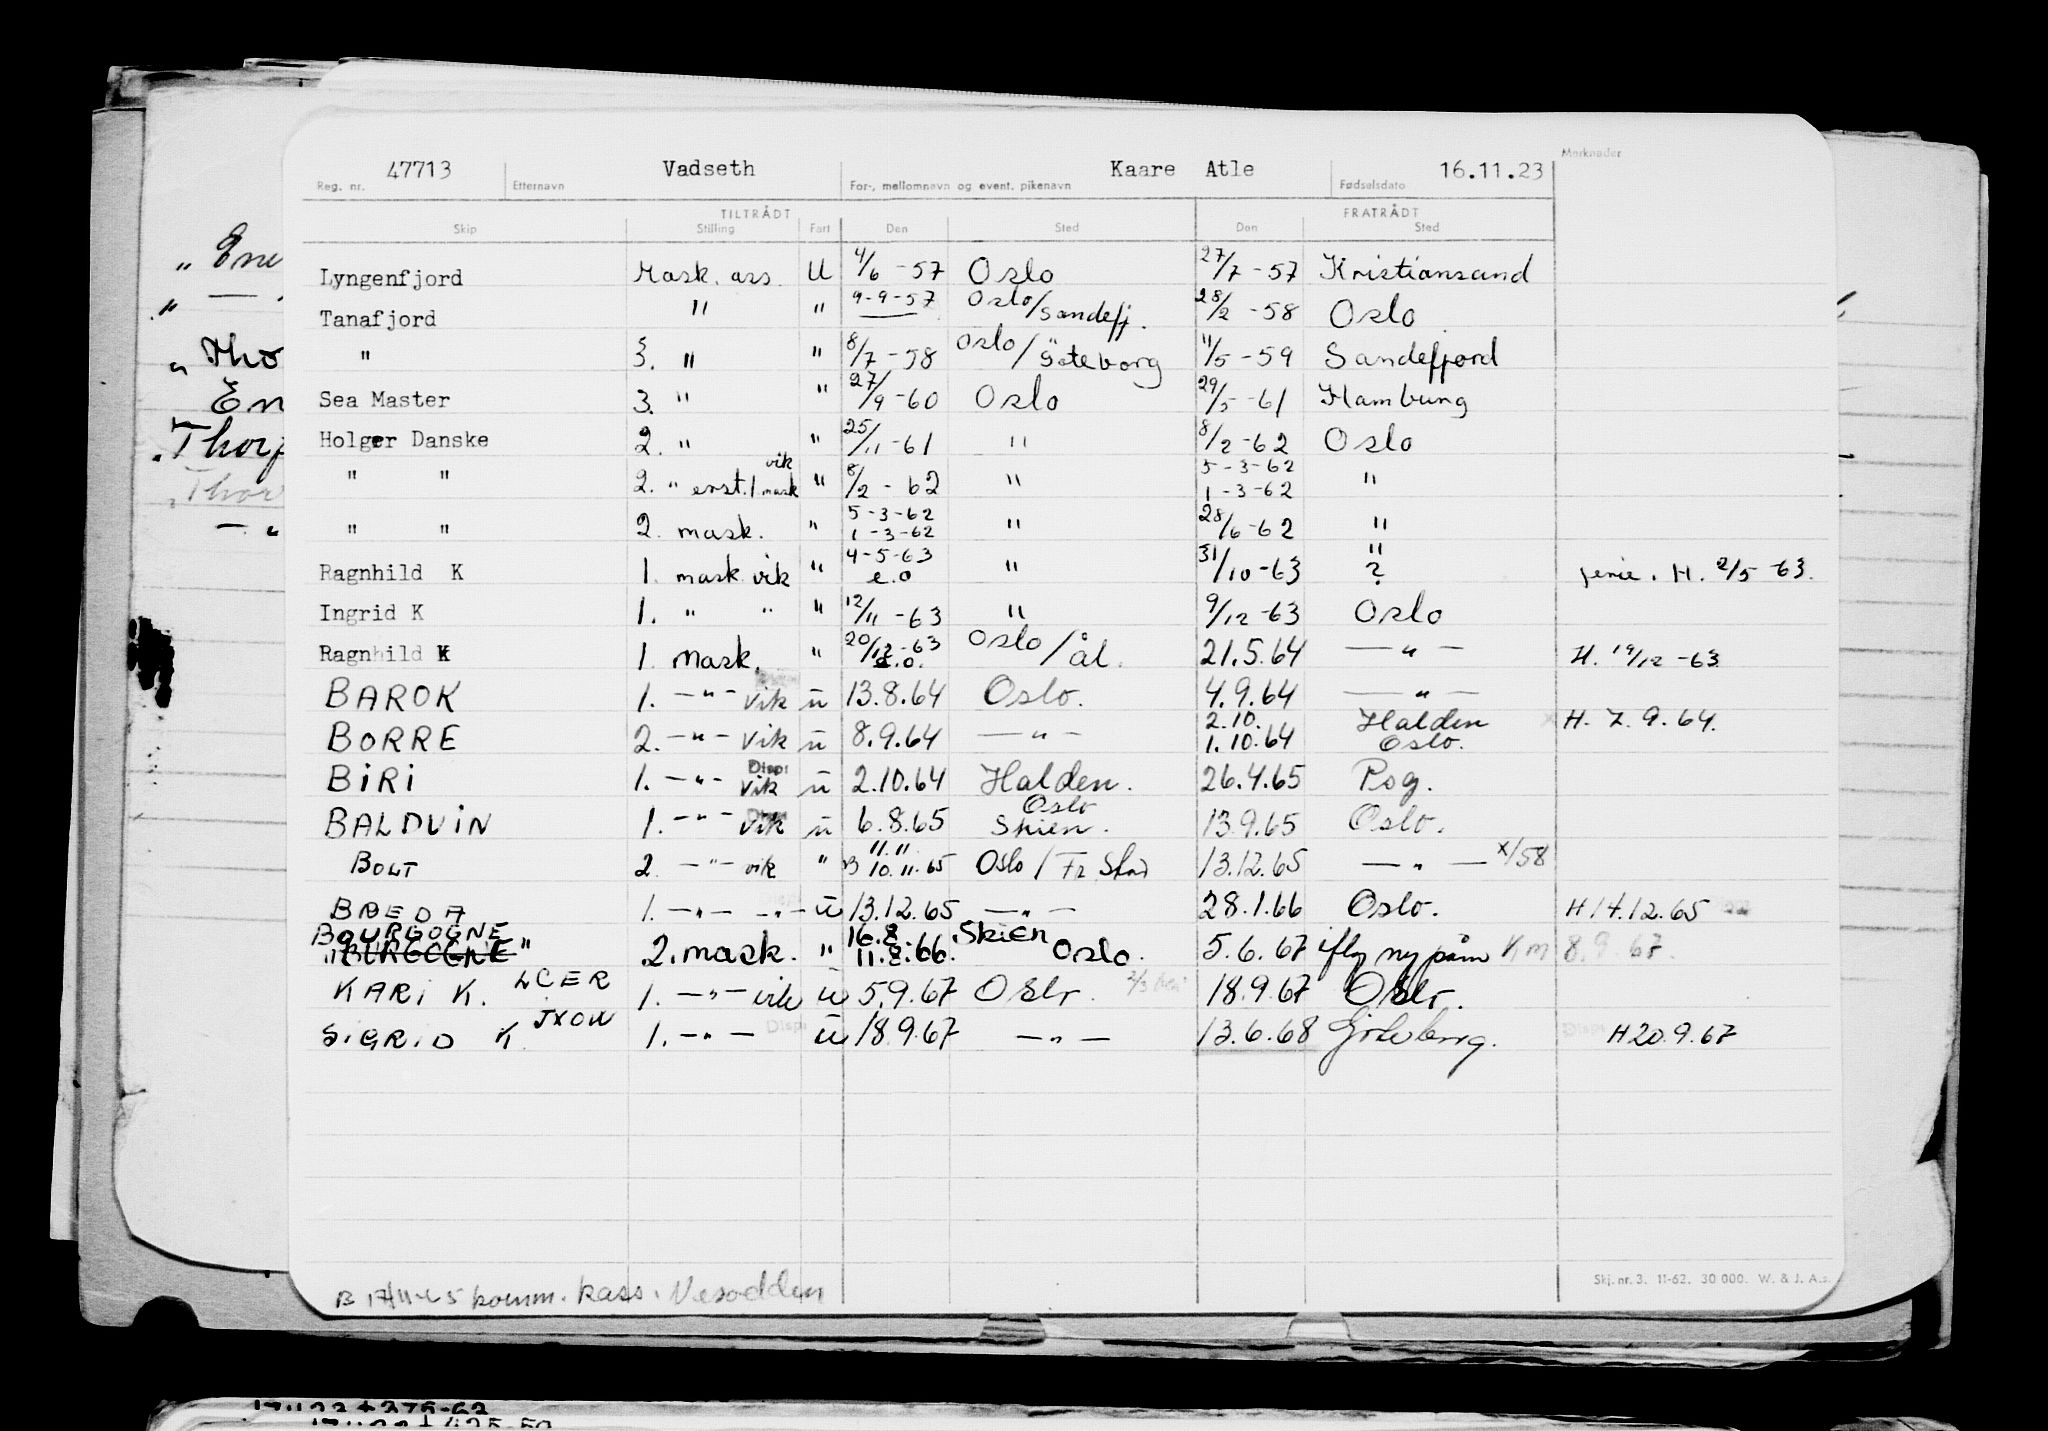 47713 Vadseth Kaare Atle 16.11.23 Merknader
Reg. nr. Etternavn For-, mellomnavn og event. pikenavn Fødselsdato
TILTRÅDT FRATRÅDT
Skip Stilling Fart Den Sted Den Sted
Lyngenfjord Mask. ass. U 4/6 -57 Oslo 27/7 -57 Kristiansand
Tanafjord " " 9-9-57 Oslo/Sandefj. 28/2 -58 Oslo
" 3. " " 8/7 -58 Oslo/Göteborg 11/5 -59 Sandefjord
Sea Master 3. " " 27/9 -60 Oslo 29/5 -61 Hamburg
Holger Danske 2. " " 25/11 -61 " 8/2 -62 Oslo
vik 5-3-62
" " 2. " erst./mask " 8/2 - 62 " 1-3-62 "
5-3-62
" " 2. mask. " 1-3-62 " 28/6 -62 "
4-5-63 "
Ragnhild K 1. mask. vik " e.o " 31/10 -63 ? ferie. H. 2/5 -63.
Ingrid K 1. " " " 12/11 -63 " 9/12 -63 Oslo
Ragnhild K 1. Mask. " 20/12 -63 e.o. Oslo/Ål. 21.5.64 — " — H. 19/12 -63
BAROK 1. — " — vik u 13.8.64 Oslo. 4.9.64 — " —
2.10. Halden
BORRE 2. — " — vik u 8.9.64 — " — 1.10.64 Oslo. H. 7.9.64.
BIRI 1. — " — Disp vik u 2.10.64 Halden. 26.4.65 Psg.
Oslo
BALDUIN 1. — " — vik u 6.8.65 Skien. 13.9.65 Oslo.
11.11
BOLT 2 — " — vik " B 10.11.65 Oslo / Fr. Stad 13.12.65 — " — x/58
BREDA 1. — " — — " — u 13.12.65 — " — 28.1.66 Oslo. H 14.12.65
BOURGOGNE 16.8. Skien
" 2. mask. " 11.8.66. Oslo. 5.6.67 iflg ny påm Km 8.9.67.
KARI K. LCER 1. — " — vik u 5.9.67 Oslo. 18.9.67 Oslo.
SIGRID K. JXOU 1. — " — Disp u 18.9.67 — " — 13.6.68 Göteborg. Disp H 20.9.67
Skj. nr. 3. 11-62. 30 000. W. & J. A.s.
B 17/11-65 komm. kass. Nesodden